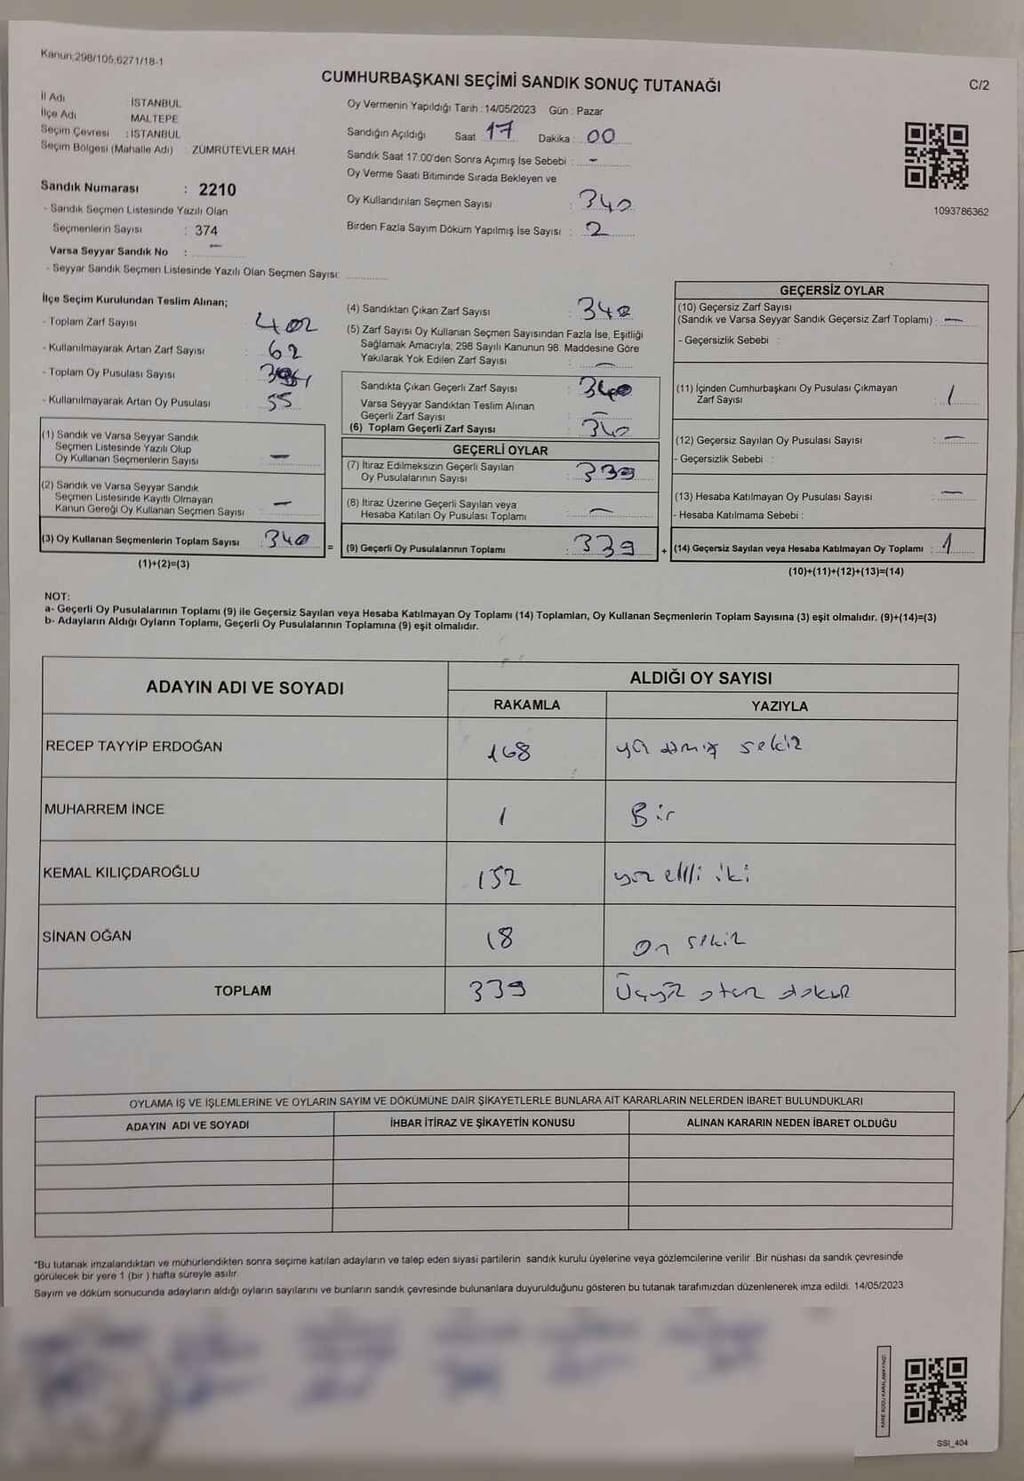 Kanun:298/105,6271/18-1
CUMHURBAŞKANI SEÇİMİ SANDIK SONUÇ TUTANAĞI
C/2
İl Adı İSTANBUL
İlçe Adı MALTEPE
Seçim Çevresi : İSTANBUL
Seçim Bölgesi (Mahalle Adı) : ZÜMRÜTEVLER MAH
Sandık Numarası : 2210
- Sandık Seçmen Listesinde Yazılı Olan
Seçmenlerin Sayısı : 374
Varsa Seyyar Sandık No : -
- Seyyar Sandık Seçmen Listesinde Yazılı Olan Seçmen Sayısı:
Oy Vermenin Yapıldığı Tarih : 14/05/2023 Gün : Pazar
Sandığın Açıldığı Saat 17 Dakika : 00
Sandık Saat 17:00'den Sonra Açımış İse Sebebi : -
Oy Verme Saati Bitiminde Sırada Bekleyen ve
Oy Kullandırılan Seçmen Sayısı : 340
Birden Fazla Sayım Döküm Yapılmış İse Sayısı : 2
1093786362
İlçe Seçim Kurulundan Teslim Alınan;
- Toplam Zarf Sayısı : 402
- Kullanılmayarak Artan Zarf Sayısı : 62
- Toplam Oy Pusulası Sayısı :
- Kullanılmayarak Artan Oy Pusulası : 55
(1) Sandık ve Varsa Seyyar Sandık
Seçmen Listesinde Yazılı Olup
Oy Kullanan Seçmenlerin Sayısı : -
(2) Sandık ve Varsa Seyyar Sandık
Seçmen Listesinde Kayıtlı Olmayan
Kanun Gereği Oy Kullanan Seçmen Sayısı : -
(3) Oy Kullanan Seçmenlerin Toplam Sayısı : 340
(1)+(2)=(3)
(4) Sandıktan Çıkan Zarf Sayısı : 340
(5) Zarf Sayısı Oy Kullanan Seçmen Sayısından Fazla İse, Eşitliği
Sağlamak Amacıyla, 298 Sayılı Kanunun 98. Maddesine Göre
Yakılarak Yok Edilen Zarf Sayısı : -
Sandıkta Çıkan Geçerli Zarf Sayısı : 340
Varsa Seyyar Sandıktan Teslim Alınan
Geçerli Zarf Sayısı : -
(6) Toplam Geçerli Zarf Sayısı : 340
GEÇERLİ OYLAR
(7) İtiraz Edilmeksizin Geçerli Sayılan
Oy Pusulalarının Sayısı : 339
(8) İtiraz Üzerine Geçerli Sayılan veya
Hesaba Katılan Oy Pusulası Toplamı : -
= (9) Geçerli Oy Pusulalarının Toplamı : 339
GEÇERSİZ OYLAR
(10) Geçersiz Zarf Sayısı
(Sandık ve Varsa Seyyar Sandık Geçersiz Zarf Toplamı) : -
- Geçersizlik Sebebi :
(11) İçinden Cumhurbaşkanı Oy Pusulası Çıkmayan
Zarf Sayısı : 1
(12) Geçersiz Sayılan Oy Pusulası Sayısı : -
- Geçersizlik Sebebi :
(13) Hesaba Katılmayan Oy Pusulası Sayısı : -
- Hesaba Katılmama Sebebi :
+ (14) Geçersiz Sayılan veya Hesaba Katılmayan Oy Toplamı : 1
(10)+(11)+(12)+(13)=(14)
NOT:
a- Geçerli Oy Pusulalarının Toplamı (9) ile Geçersiz Sayılan veya Hesaba Katılmayan Oy Toplamı (14) Toplamları, Oy Kullanan Seçmenlerin Toplam Sayısına (3) eşit olmalıdır. (9)+(14)=(3)
b- Adayların Aldığı Oyların Toplamı, Geçerli Oy Pusulalarının Toplamına (9) eşit olmalıdır.
ADAYIN ADI VE SOYADI
ALDIĞI OY SAYISI
RAKAMLA YAZIYLA
RECEP TAYYİP ERDOĞAN 168 sekiz
MUHARREM İNCE 1 Bir
KEMAL KILIÇDAROĞLU 152 yüz elli iki
SİNAN OĞAN 18 On sekiz
TOPLAM 339 Üçyüz otuz dokuz
OYLAMA İŞ VE İŞLEMLERİNE VE OYLARIN SAYIM VE DÖKÜMÜNE DAİR ŞİKAYETLERLE BUNLARA AİT KARARLARIN NELERDEN İBARET BULUNDUKLARI
ADAYIN ADI VE SOYADI İHBAR İTİRAZ VE ŞİKAYETİN KONUSU ALINAN KARARIN NEDEN İBARET OLDUĞU
*Bu tutanak imzalandıktan ve mühürlendikten sonra seçime katılan adayların ve talep eden siyasi partilerin sandık kurulu üyelerine veya gözlemcilerine verilir .Bir nüshası da sandık çevresinde
görülecek bir yere 1 (bir ) hafta süreyle asılır.
Sayım ve döküm sonucunda adayların aldığı oyların sayılarını ve bunların sandık çevresinde bulunanlara duyurulduğunu gösteren bu tutanak tarafımızdan düzenlenerek imza edildi. 14/05/2023
SSI_404